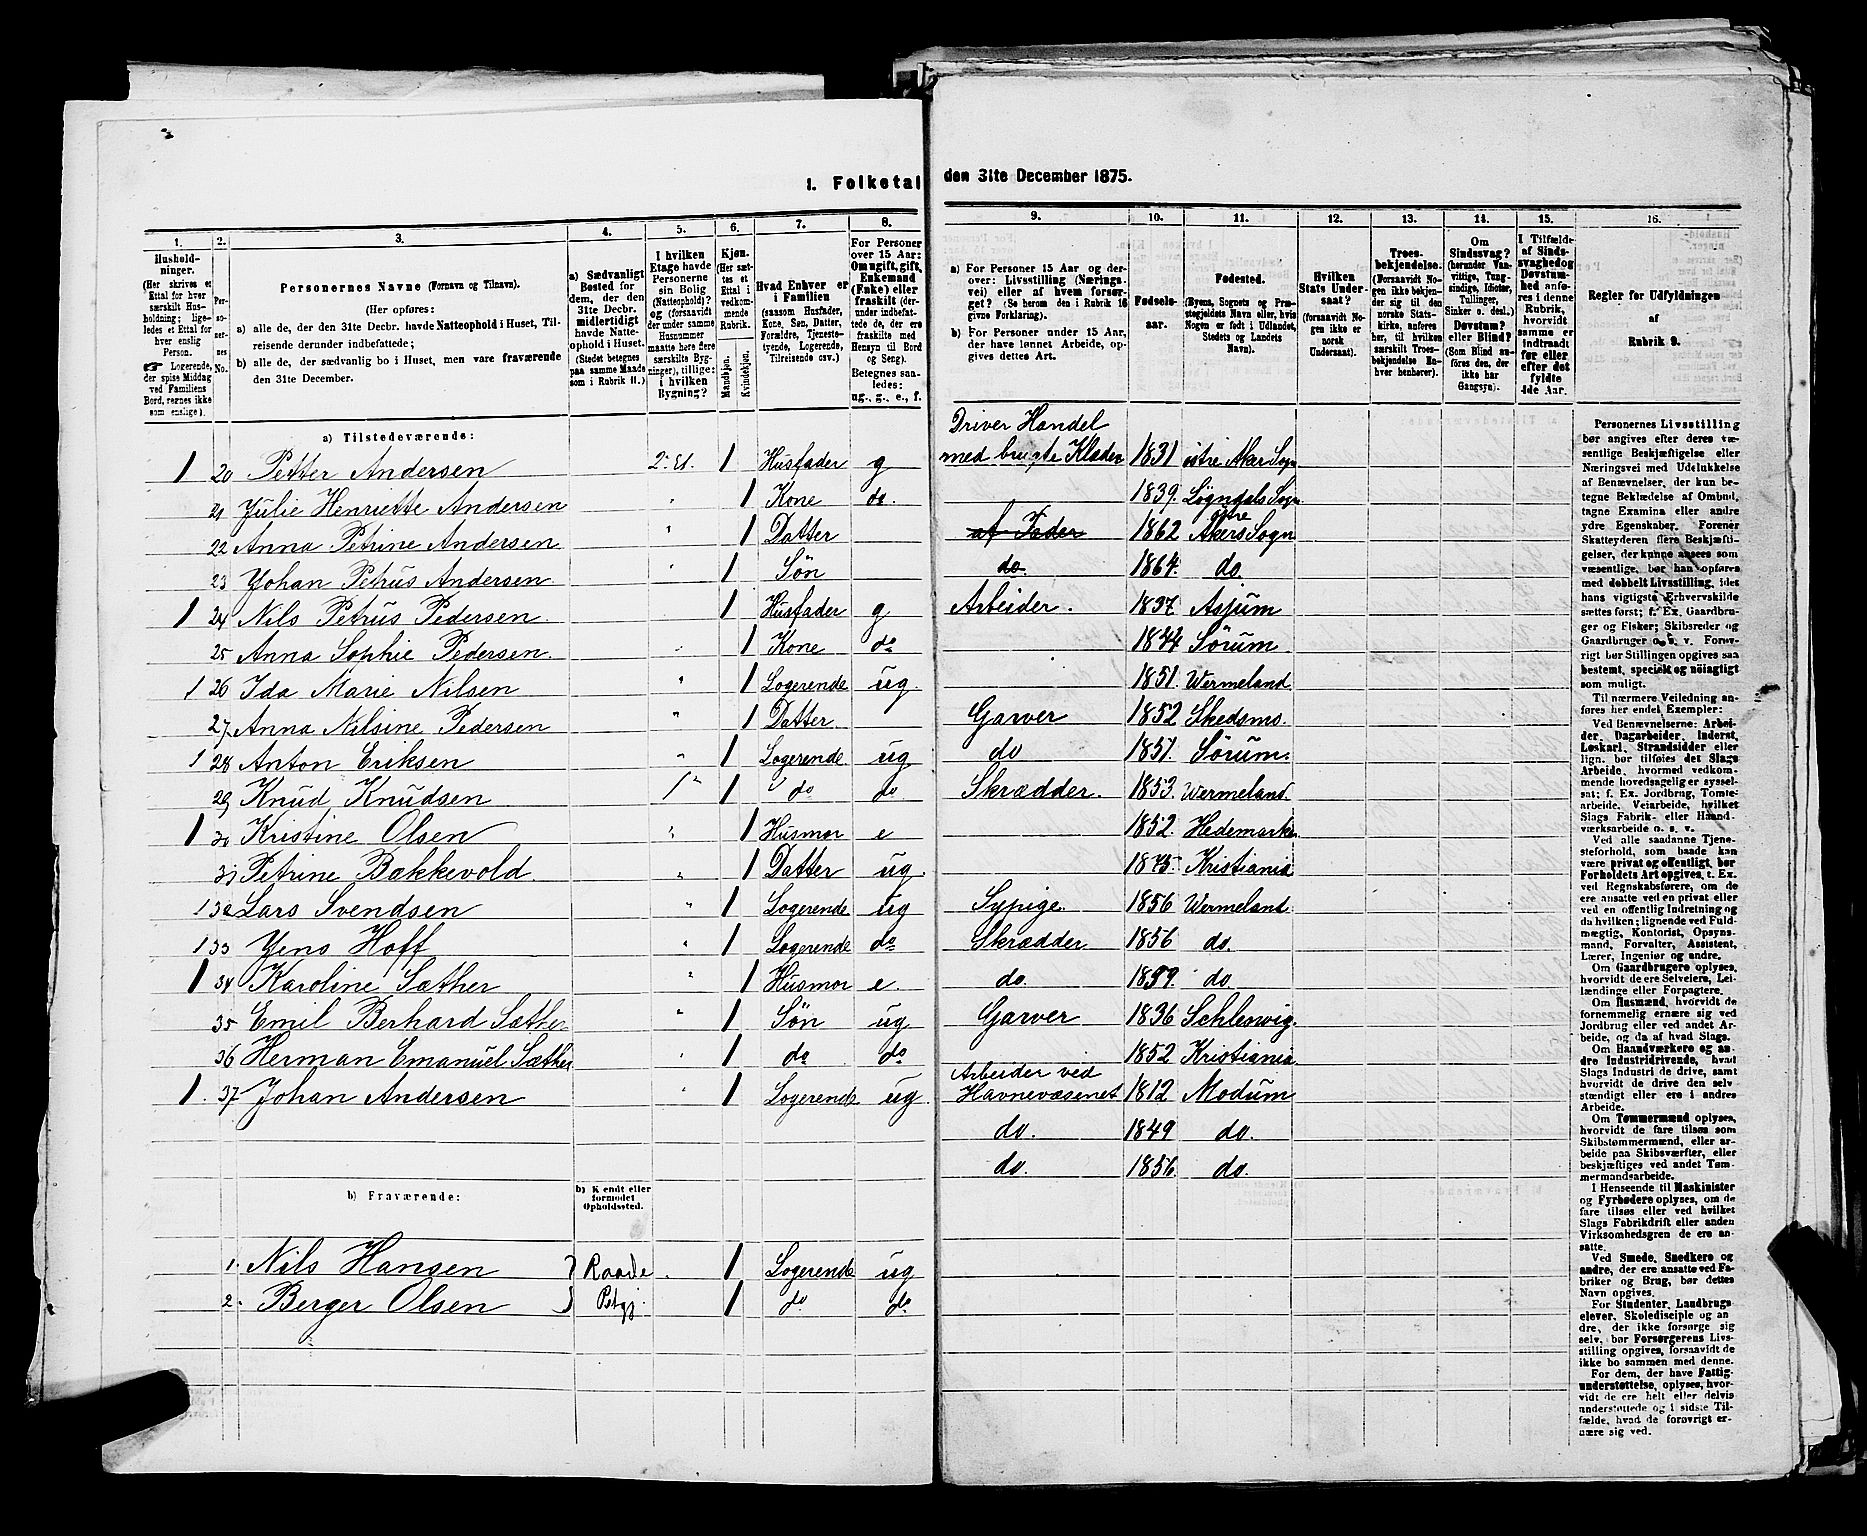 1. Folketal
den 31te December 1875.
1.
2.
3.
4.
5.
6.
7.
8.
9.
10.
11.
12.
13.
14.
15.
16.
Husholdninger.
(Her skrives et Ettal for hver særskilt Husholdning; ligeledes et Ettal for hver enslig Person.
☛ Logerende, der spise Middag ved Familiens Bord, regnes ikke som enslige).
Personernes No.
Personernes Navne (Fornavn og Tilnavn).
(Her opføres:
a) alle de, der den 31te Decbr. havde Natteophold i Huset, Tilreisende derunder indbefattede;
b) alle de, der sædvanlig bo i Huset, men vare fraværende den 31te December.
a) Sædvanligt Bosted for dem, der den 31te Decbr. midlertidigt havde Natteophold i Huset.
(Stedet betegnes paa samme Maade som i Rubrik 11.)
I hvilken Etage havde Personen sin Bolig (Natteophold)?
og (forsaavidt der under samme Husnummer maatte høre flere særskilte Bygninger), tillige: i hvilken Bygning?
Kjøn.
(Her sættes et Ettal i vedkommende Rubrik.
Mandkjøn.
Kvindekjøn.
Hvad Enhver er i Familien
(saasom Husfader, Kone, Søn, Datter, Forældre, Tjenestetyende, Logerende, Tilreisende osv.)
For Personer over 15 Aar: Om ugift, gift, Enkemand (Enke) eller fraskilt (derunder indbefattede de, der ere fraskilte med Hensyn til Bord og Seng).
Betegnes saaledes:
ug., g., e., f.
a) For Personer 15 Aar og derover: Livsstilling (Næringsvei) eller af hvem forsørget? (Se herom den i Rubrik 16 givne Forklaring).
b) For Personer under 15 Aar, der have lønnet Arbeide, opgives dettes Art.
Fødselsaar.
Fødested.
(Byens, Sognets og Præstegjeldets Navn eller, hvis Nogen er født i Udlandet, Stedets og Landets Navn).
Hvilken Stats Undersaat?
(forsaavidt Nogen ikke er norsk Undersaat).
Troesbekjendelse.
(Forsaavidt Nogen ikke bekjender sig til den norske Statskirke, anføres her, til hvilken særskilt Troesbekjendelse Enhver henhører).
Om Sindssvag?
(herunder Vanvittige, Tungsindige, Idioter, Tullinger, Sinker o. desl.)
Døvstum? eller Blind?
(Som Blind anføres den, der ikke har Gangsyn).
I Tilfælde af Sindssvaghed og Døvstumhed anføres i denne Rubrik, hvorvidt samme er indtraadt før eller efter det fyldte 4de Aar.
Regler for Udfyldningen af Rubrik 9.
a) Tilstedeværende:
Driver Handel
1 20 Petter Andersen 2. Et. 1 Husfader g med brugte Klæder 1831 østre Aker Sogn
21 Julie Henriette Andersen " 1 Kone do. 1839. Løgndals Sogn
østre
22 Anna Petrine Andersen " 1 Datter af Fader 1862 Akers Sogn
23 Johan Petrus Andersen " 1 Søn do. 1864. do.
1 24 Nils Petrus Pedersen. 1 Husfader g Arbeider. 1837 Asjum
25 Anna Sophie Pedersen. " 1 Kone do 1844 Sörum
1 26 Ida Marie Nilsen " 1 Logerende ug. 1851. Wermeland
27 Anna Nilsine Pedersen " 1 Datter Garver 1852 Skedsmo.
1 28 Anton Eriksen " 1 Logerende ug do 1851. Sörum.
29 Knud Knudsen 1" 1 do do Skrædder. 1853. Wermeland.
1 30 Kristine Olsen " 1 Husmor e 1852. Hedemarke
31 Petrine Bækkevold. " 1 Datter ug. 1875. Kristiania
1 32 Lars Svendsen " 1 Logerende ug Sypige. 1856 Wermeland.
1 33 Jens Hoff " 1 Logerende do Skrædder 1856 do.
1 34 Karoline Sæther " 1 Husmor e. do. 1859. do.
35 Emil Berhard Sæther " 1 Søn ug. Garver 1836 Schleswig.
36 Herman Emanuel Sæther " 1 do do 1852 Kristiania
Arbeider ved
1. 37 Johan Andersen " 1 Logerende ug. Havnevæsenet 1812 Modum
do. 1849 do.
do. 1856. do.
b) Fraværende:
b) Kjendt eller formodet Opholdssted.
1. Nils Hansen } Raade 1 Logerende ug
2. Berger Olsen } Pstgj. 1 do do
Personernes Livsstilling bør angives efter deres væsentlige Beskjæftigelse eller Næringsvei med Udelukkelse af Benævnelser, der kun betegne Beklædelse af Ombud, tagne Examina eller andre ydre Egenskaber. Forener Skatteyderen flere Beskjæftigelser, der kunne ansees som væsentlige, bør han opføres med dobbelt Livsstilling, idet hans vigtigste Erhvervskilde sættes først; f. Ex. Gaardbruger og Fisker; Skibsreder og Gaardbruger o. s. v. Forøvrigt bør Stillingen opgives saa bestemt, specielt og nøiagtigt som muligt.
Til nærmere Veiledning anføres her endel Exempler:
Ved Benævnelserne: Arbeider, Dagarbeider, Inderst, Løskarl, Strandsidder eller lign. bør tilføies det Slags Arbeide, hvormed vedkommende hovedsagelig er sysselsat; f. Ex. Jordbrug, Tomtearbeide, Veiarbeide, hvilket Slags Fabrik- eller Haandværksarbeide o. s. v.
Ved alle saadanne Tjenesteforhold, som baade kan være privat og offentligt, bør Forholdets Art opgives, t. Ex. ved Regnskabsførere, om de ere ansatte ved en privat eller ved en offentlig Indretning og da hvilken; lignende ved Fuldmægtig, Kontorist, Opsynsmand, Forvalter, Assistent, Lærer, Ingeniør og andre.
Om Gaardbrugere oplyses, hvorvidt de ere Selveiere, Leilændinge eller Forpagtere.
Om Husmænd, hvorvidt de fornemmelig ernære sig ved Jordbrug eller ved andet Arbeide, og da af hvad Slags.
Om Haandværkere og andre Industridrivende, hvad Slags Industri de drive, samt hvorvidt de drive den selvstændigt eller ere i andres Arbeide.
Om Tømmermænd oplyses, hvorvidt de fare tilsøs som Skibstømmermænd, eller arbeide paa Skibsværfter, eller beskjæftiges ved andet Tømmermandsarbeide.
I Henseende til Maskinister og Fyrbødere oplyses, om de fare tilsøs eller ved hvilket Slags Fabrikdrift eller anden Virksomhedsgren de ere ansatte.
Ved Smede, Snedkere og andre, der ere ansatte ved Fabriker og Brug, bør dettes Navn opgives.
For Studenter, Landbrugselever, Skoledisciple og andre, der ikke forsørge sig selv, bør Forsørgerens Livsstilling opgives, forsaavidt de ikke bo sammen med denne.
For dem, der have Fattigunderstøttelse, oplyses, hvorvidt de ere helt eller delvis understøttede og i sidste Tilfælde, hvad de forøvrigt ernære sig ved.